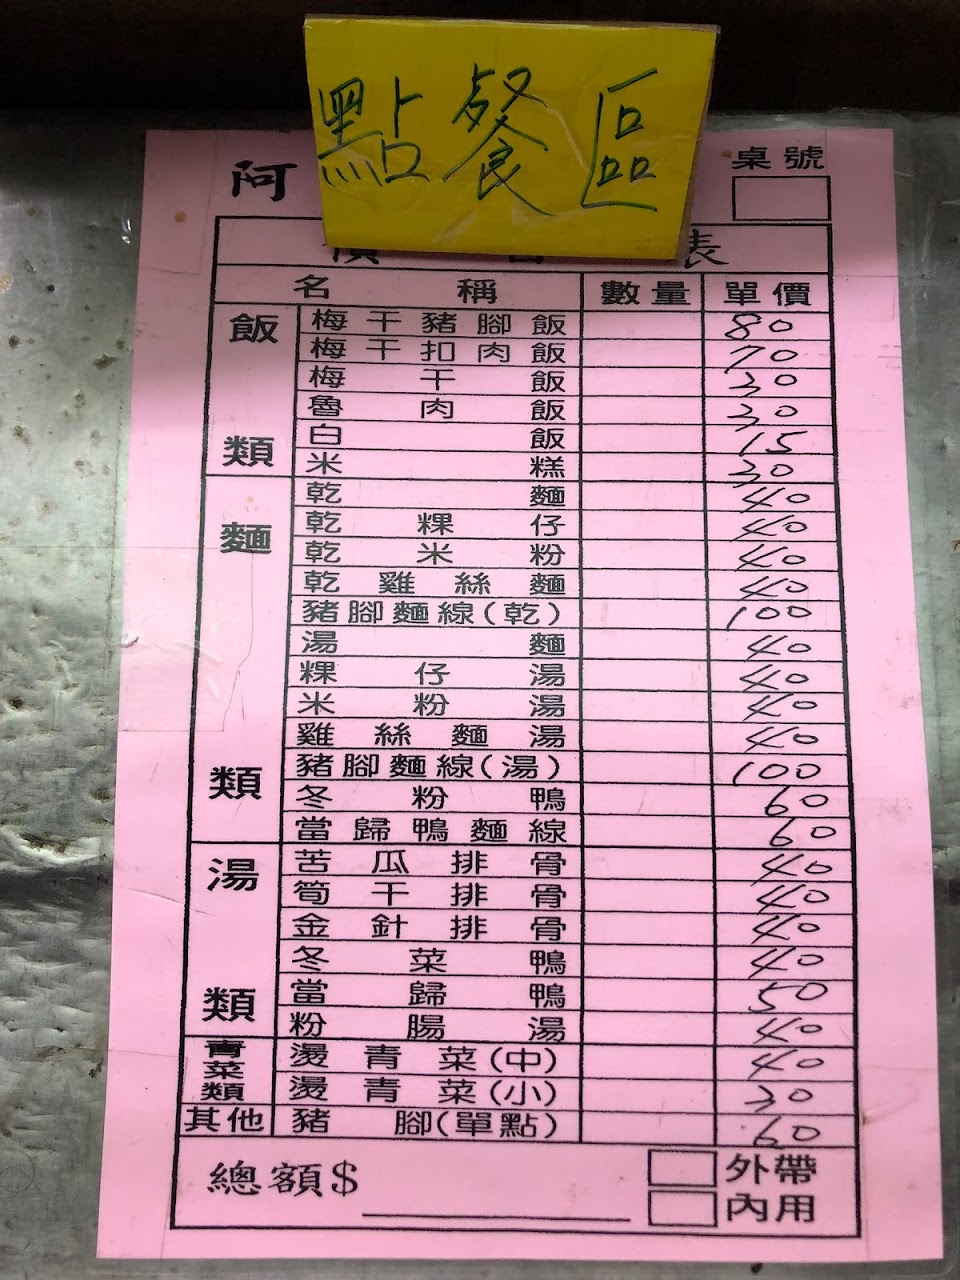 點餐區
阿
桌號
表
名稱 數量 單價
飯類
梅干豬腳飯 80
梅干扣肉飯 70
梅干飯 30
魯肉飯 30
白飯 15
米糕 30
麵類
乾麵 40
乾粿仔 40
乾米粉 40
乾雞絲麵 40
豬腳麵線(乾) 100
湯麵 40
粿仔湯 40
米粉湯 40
雞絲麵湯 40
豬腳麵線(湯) 100
冬粉鴨 60
當歸鴨麵線 60
湯類
苦瓜排骨 40
筍干排骨 40
金針排骨 40
冬菜鴨 40
當歸鴨 50
粉腸湯 40
青菜類
燙青菜(中) 40
燙青菜(小) 30
其他
豬腳(單點) 60
總額$
外帶
內用